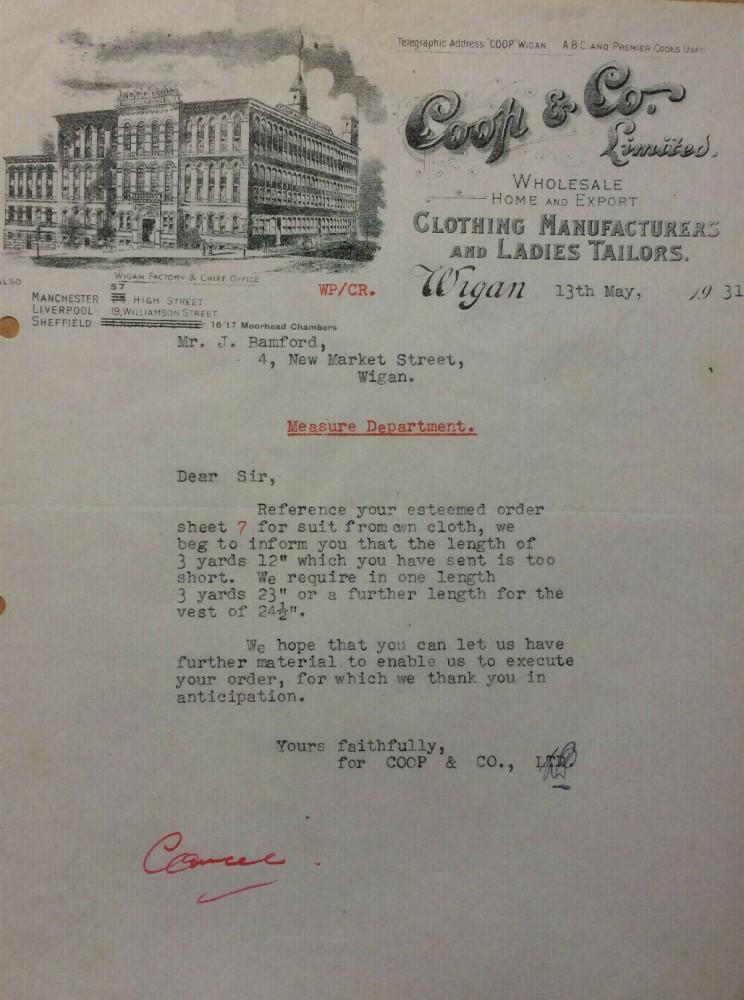 Telegraphic Address "COOP" WIGAN   A.B.C. AND PREMIER CODES USED
Coop & Co.
Limited.
WHOLESALE
HOME AND EXPORT
CLOTHING MANUFACTURERS
AND LADIES TAILORS.
WIGAN FACTORY & CHIEF OFFICE
ALSO
MANCHESTER 57, HIGH STREET
LIVERPOOL 19, WILLIAMSON STREET
SHEFFIELD 16/17 Moorhead Chambers
WP/CR.
Wigan 13th May, 1931
Mr. J. Bamford,
4, New Market Street,
Wigan.
Measure Department.
Dear Sir,
Reference your esteemed order
sheet 7 for suit from own cloth, we
beg to inform you that the length of
3 yards 12" which you have sent is too
short. We require in one length
3 yards 23" or a further length for the
vest of 24½".
We hope that you can let us have
further material to enable us to execute
your order, for which we thank you in
anticipation.
Yours faithfully,
for COOP & CO., LTD.
Cancel